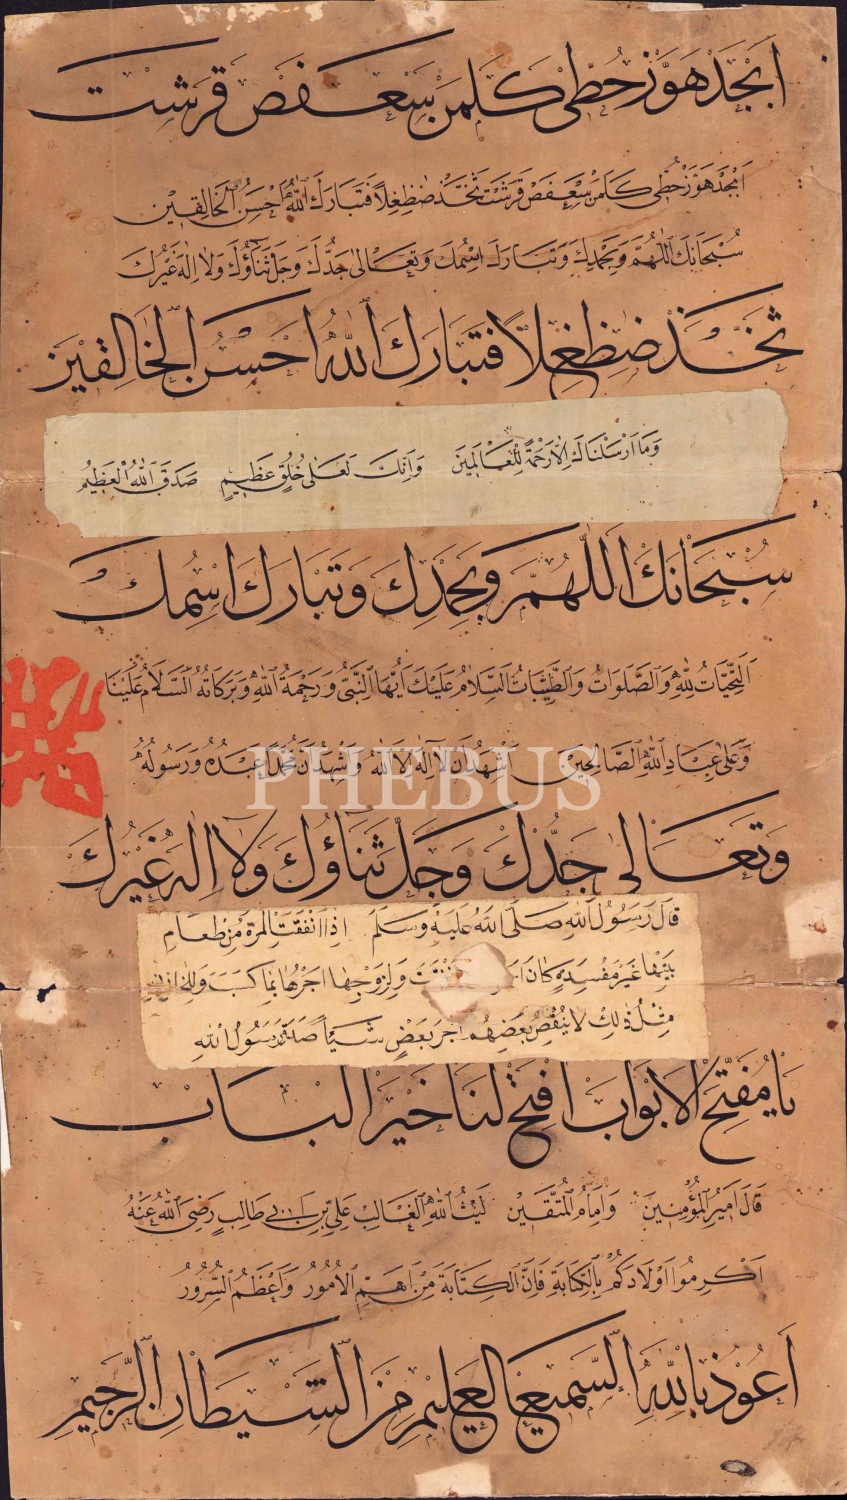 ابجد هوز حطي كلمن سعفص قرشت
ابجد هوز حطي كلمن سعفص قرشت ثخذ ضظغلا فتبارك الله احسن الخالقين
سبحانك اللهم وبحمدك وتبارك اسمك وتعالى جدك وجل ثناؤك ولا اله غيرك
ثخذ ضظغلا فتبارك الله احسن الخالقين
وما ارسلناك الا رحمة للعالمين وانك لعلى خلق عظيم صدق الله العظيم
سبحانك اللهم وبحمدك وتبارك اسمك
التحيات لله والصلوات والطيبات السلام عليك ايها النبي ورحمة الله وبركاته السلام علينا
وعلى عباد الله الصالحين اشهد ان لا اله الا الله واشهد ان محمدا عبده ورسوله
PHEBUS
وتعالى جدك وجل ثناؤك ولا اله غيرك
قال رسول الله صلى الله عليه وسلم اذا انفقت المرة من طعام
بيتها غير مفسدة كان ولزوجها اجرها بما كسب وللخازن
مثل ذلك لا ينقص بعضهم اجر بعض شيئا صدق رسول الله
يا مفتح الابواب افتح لنا خير الباب
قال امير المؤمنين وامام المتقين ليث الله الغالب علي بن ابي طالب رضي الله عنه
اكرموا اولادكم بالكتابة فان الكتابة من اهم الامور واعظم السرور
اعوذ بالله السميع العليم من الشيطان الرجيم